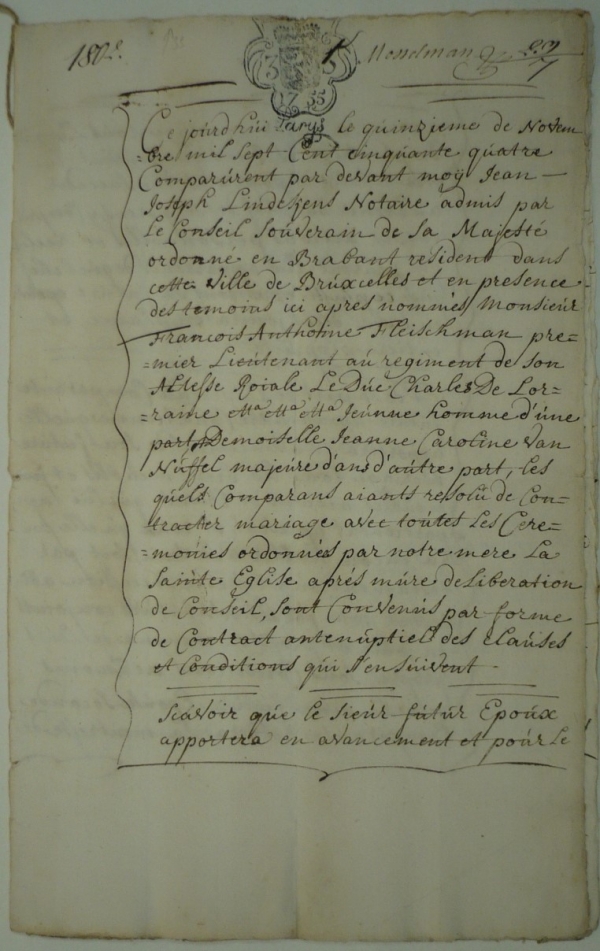 180e.
Mosselman
3 3
17 55
Ce jourd'huÿ le quinzieme de Novem
=bre mil sept Cent cinquante quatre
Comparúrent par devant moy Jean
Joseph Lindekens Notaire admis par
Le Conseil Souverain de Sa Majesté
ordonné en Brabant resident dans
cette Ville de Brúxcelles et en presence
des temoins ici aprés nommés Monsieur
François Anthoine Fleischman pre=
=mier Lieútenant aú regiment de son
Altesse Roiale Le Dúc Charles De Lor=
=raine ettª. ettª. ettª. Jeúnne homme d'úne
part, Demoiselle Jeanne Caroline Van
Núffel majeúre d'ans d'aútre part, les
qúels Comparans aiants resolú de Con=
tracter mariage avec toútes Les Cere=
=monies ordonnées par notre mere La
Sainte Eglise aprés múre deLiberation
de Conseil, sont Convenús par forme
de Contract antenúptiel des clauses
et Conditions qui s'ensuivent -
Scavoir que le Sieúr fútúr Epoúx
apportera en avancement et poúr Le